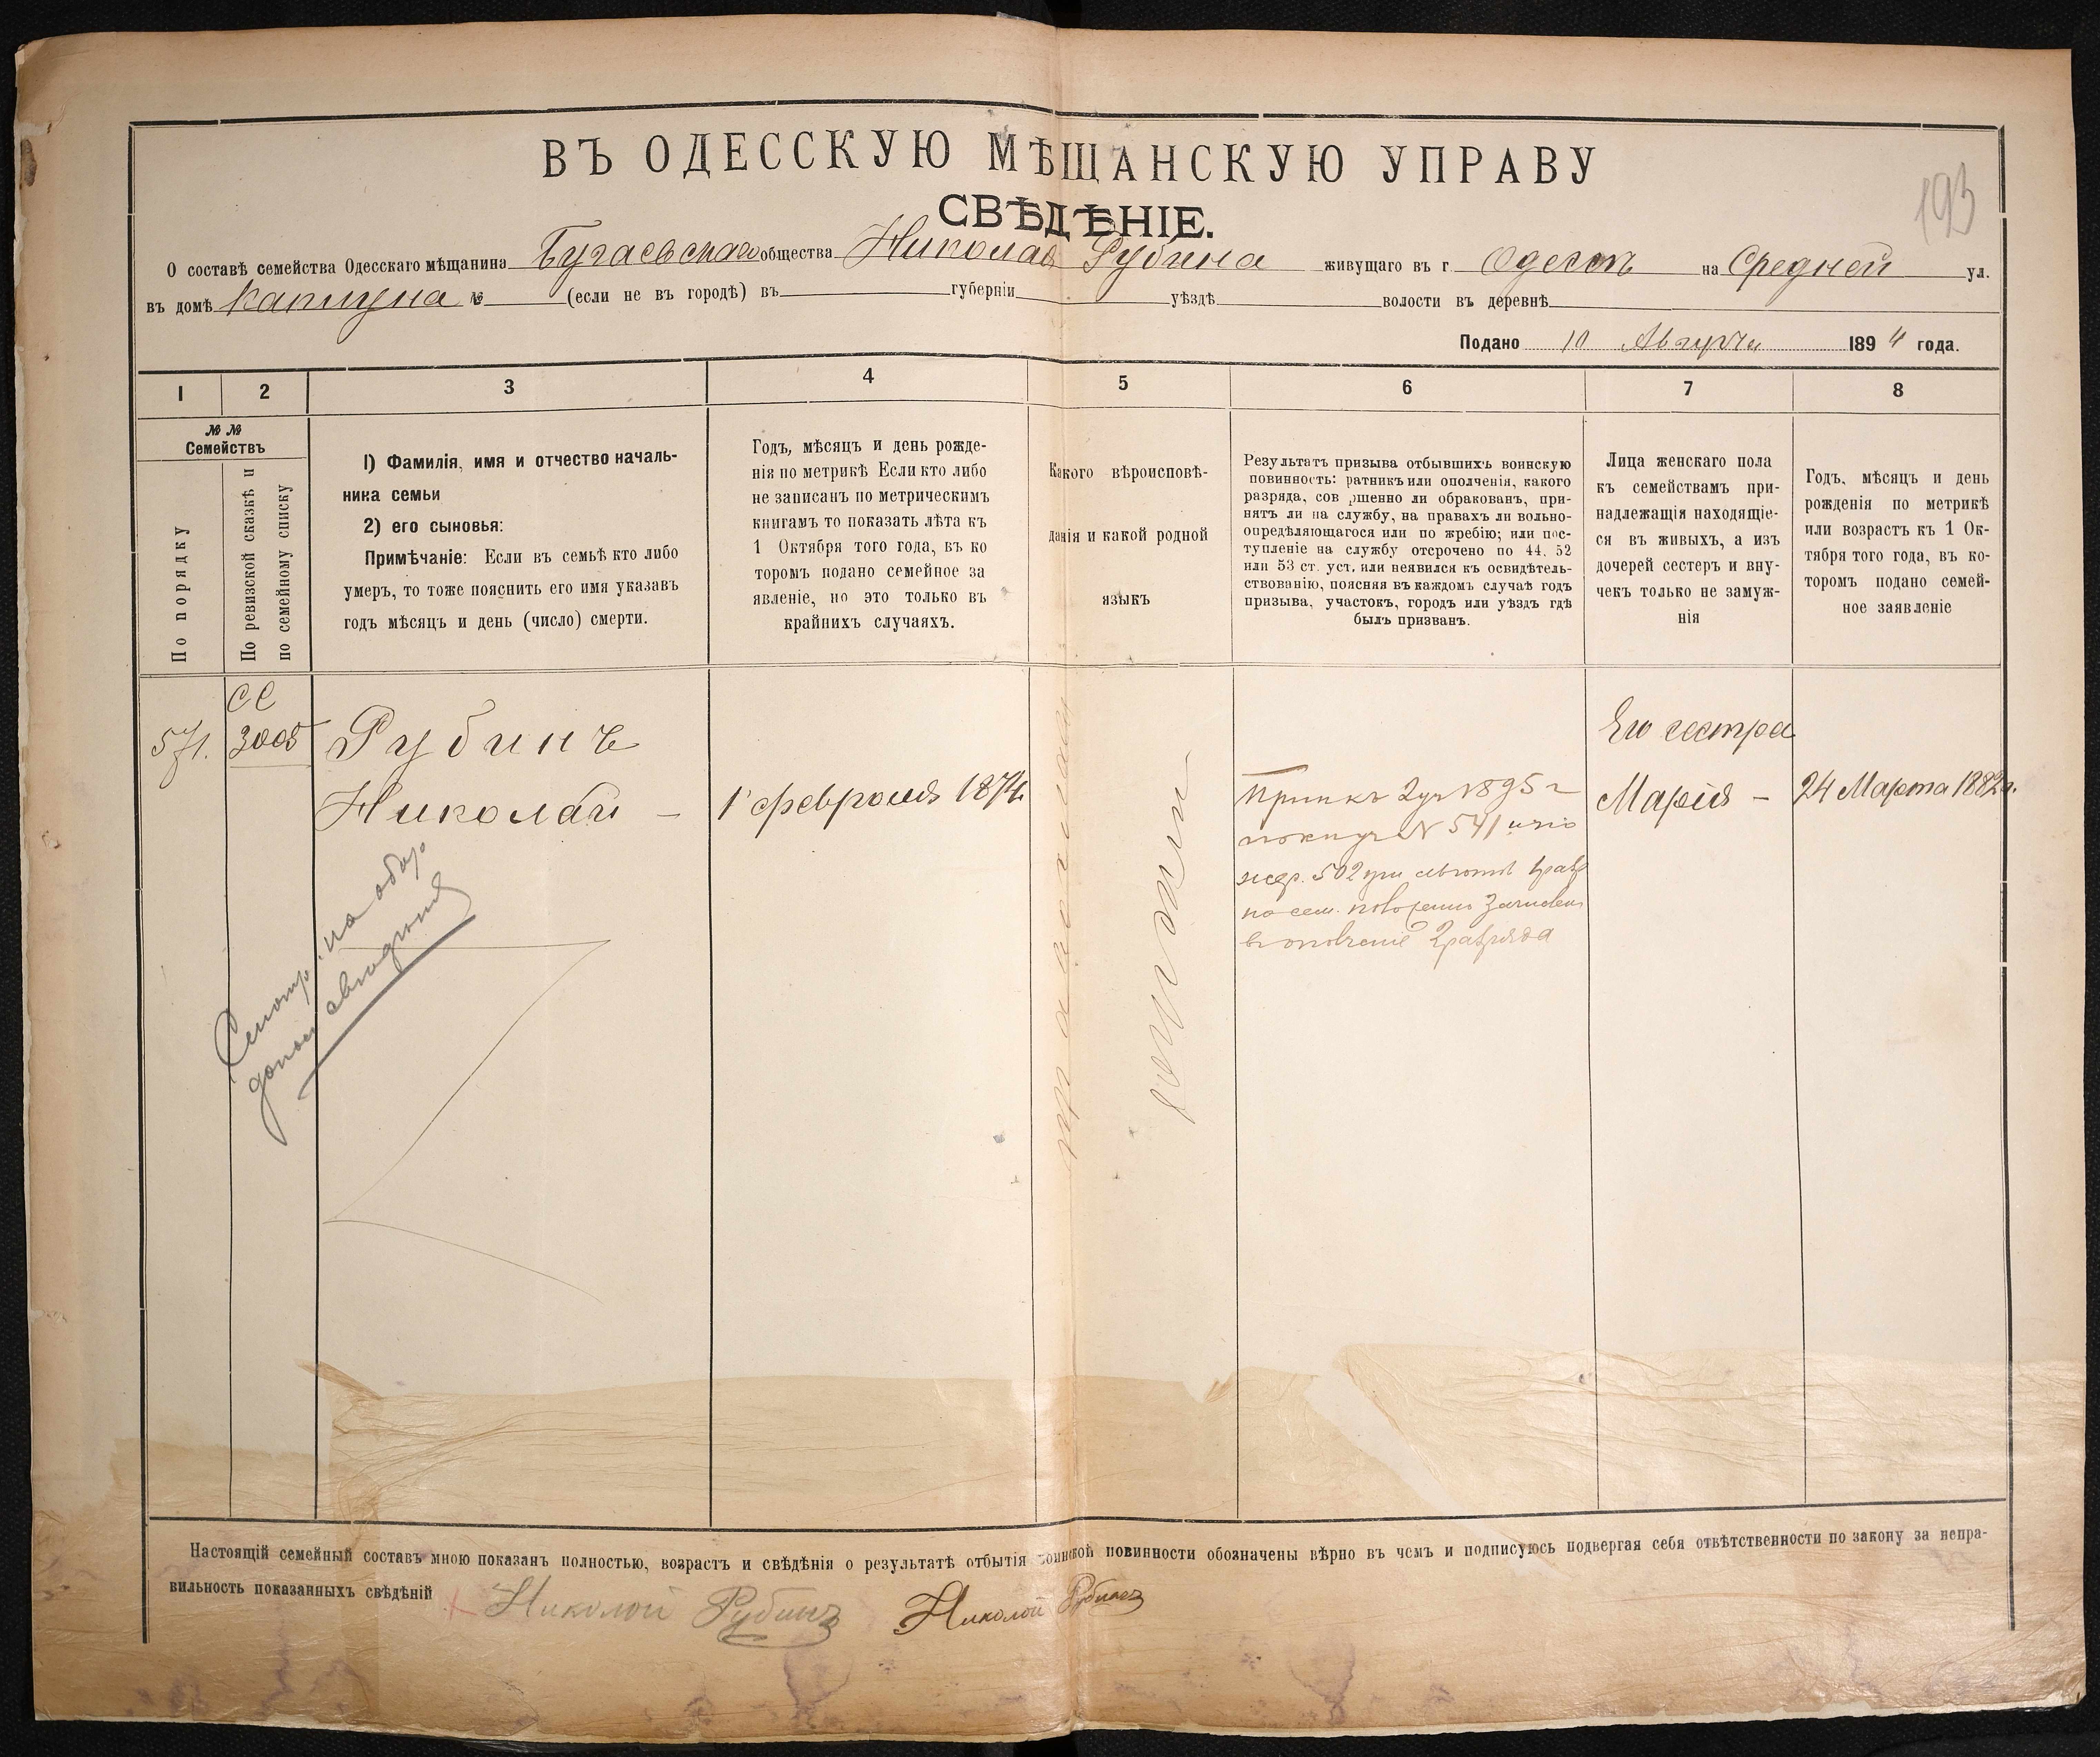 193
ВЪ ОДЕССКУЮ МѢЩАНСКУЮ УПРАВУ
СВѢДѢНІЕ.
О составѣ семейства Одесскаго мѣщанина Бугаевскаго общества Николая Рубина живущаго въ г. Одессѣ на Средней ул.
въ домѣ № (если не въ городѣ) въ губерніи уѣздѣ волости въ деревнѣ
Подано 10 Августа 1894 года.
1 2 3 4 5 6 7 8
№ №
Семействъ
По порядку
По ревизской сказкѣ и
по семейному списку
1) Фамилія, имя и отчество началь-
ника семьи
2) его сыновья:
Примѣчаніе: Если въ семьѣ кто либо
умеръ, то тоже пояснить его имя указавъ
годъ мѣсяцъ и день (число) смерти.
Годъ, мѣсяцъ и день рожде-
нія по метрикѣ Если кто либо
не записанъ по метрическимъ
книгамъ то показать лѣта къ
1 Октября того года, въ ко
торомъ подано семейное за
явленіе, но это только въ
крайнихъ случаяхъ.
Какого вѣроисповѣ-
данія и какой родной
языкъ
Результатъ призыва отбывшихъ воинскую
повинность: ратникъ или ополченія, какого
разряда, сов ршенно ли обракованъ, при-
нятъ ли на службу, на правахъ ли вольно-
опредѣляющагося или по жребію; или пос-
тупленіе на службу отсрочено по 44, 52
или 53 ст. уст. или неявился къ освидѣтель-
ствованію, поясняя въ каждомъ случаѣ годъ
призыва, участокъ, городъ или уѣздъ гдѣ
былъ призванъ.
Лица женскаго пола
къ семействамъ при-
надлежащія находящіе-
ся въ живыхъ, а изъ
дочерей сестеръ и вну-
чекъ только не замуж-
нія
Годъ, мѣсяцъ и день
рожденія по метрикѣ
или возрастъ къ 1 Ок-
тября того года, въ ко-
торомъ подано семей-
ное заявленіе
571.
СС
3005
Рубинъ
Николай –
1 февраля 1874
1895 г
N 541
жер. 502 при льготѣ 1 разр
по сем. положенію зачисленъ
въ ополченіе 2 разряда
Его сестра
Марія –
24 Марта 1882 г.
на обор
Настоящій семейный составъ мною показанъ полностью, возрастъ и свѣдѣнія о результатѣ отбытія воинской повинности обозначены вѣрно въ чемъ и подписуюсь подвергая себя отвѣтственности по закону за непра-
вильность показанныхъ свѣдѣній Николой Рубинъ Николой Рубинъ